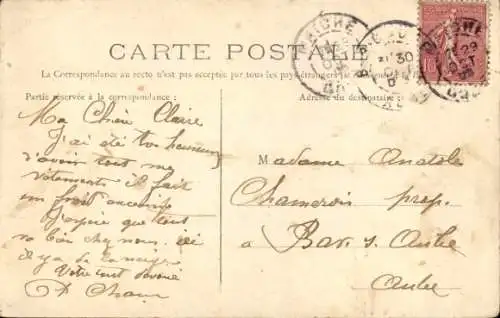 CARTE POSTALE
La Correspondance au recto n'est pas acceptée par tous les pays étrangers
Partie réservée à la correspondance :
Adresse du destinataire :
Ma Chère Claire
J'ai été très heureux
d'avoir tout me
vêtements il fait
un froid
J'espère que tout
va bien chez nous. ici
il y a de la neige
Votre tout dévoué
Madame Anatole
Chamerois prop.
à Bar s. Aube
Aube